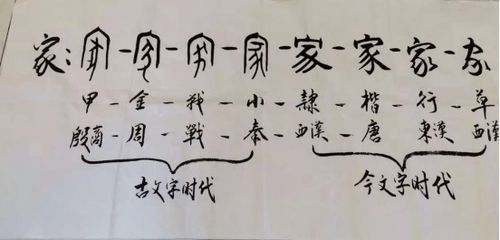 家:家-家-家-家-家-家-家-家
甲-金-战-小-隸-楷-行-草
殷商-周-戰-秦-西漢-唐-東漢-西漢
古文字时代 今文字时代